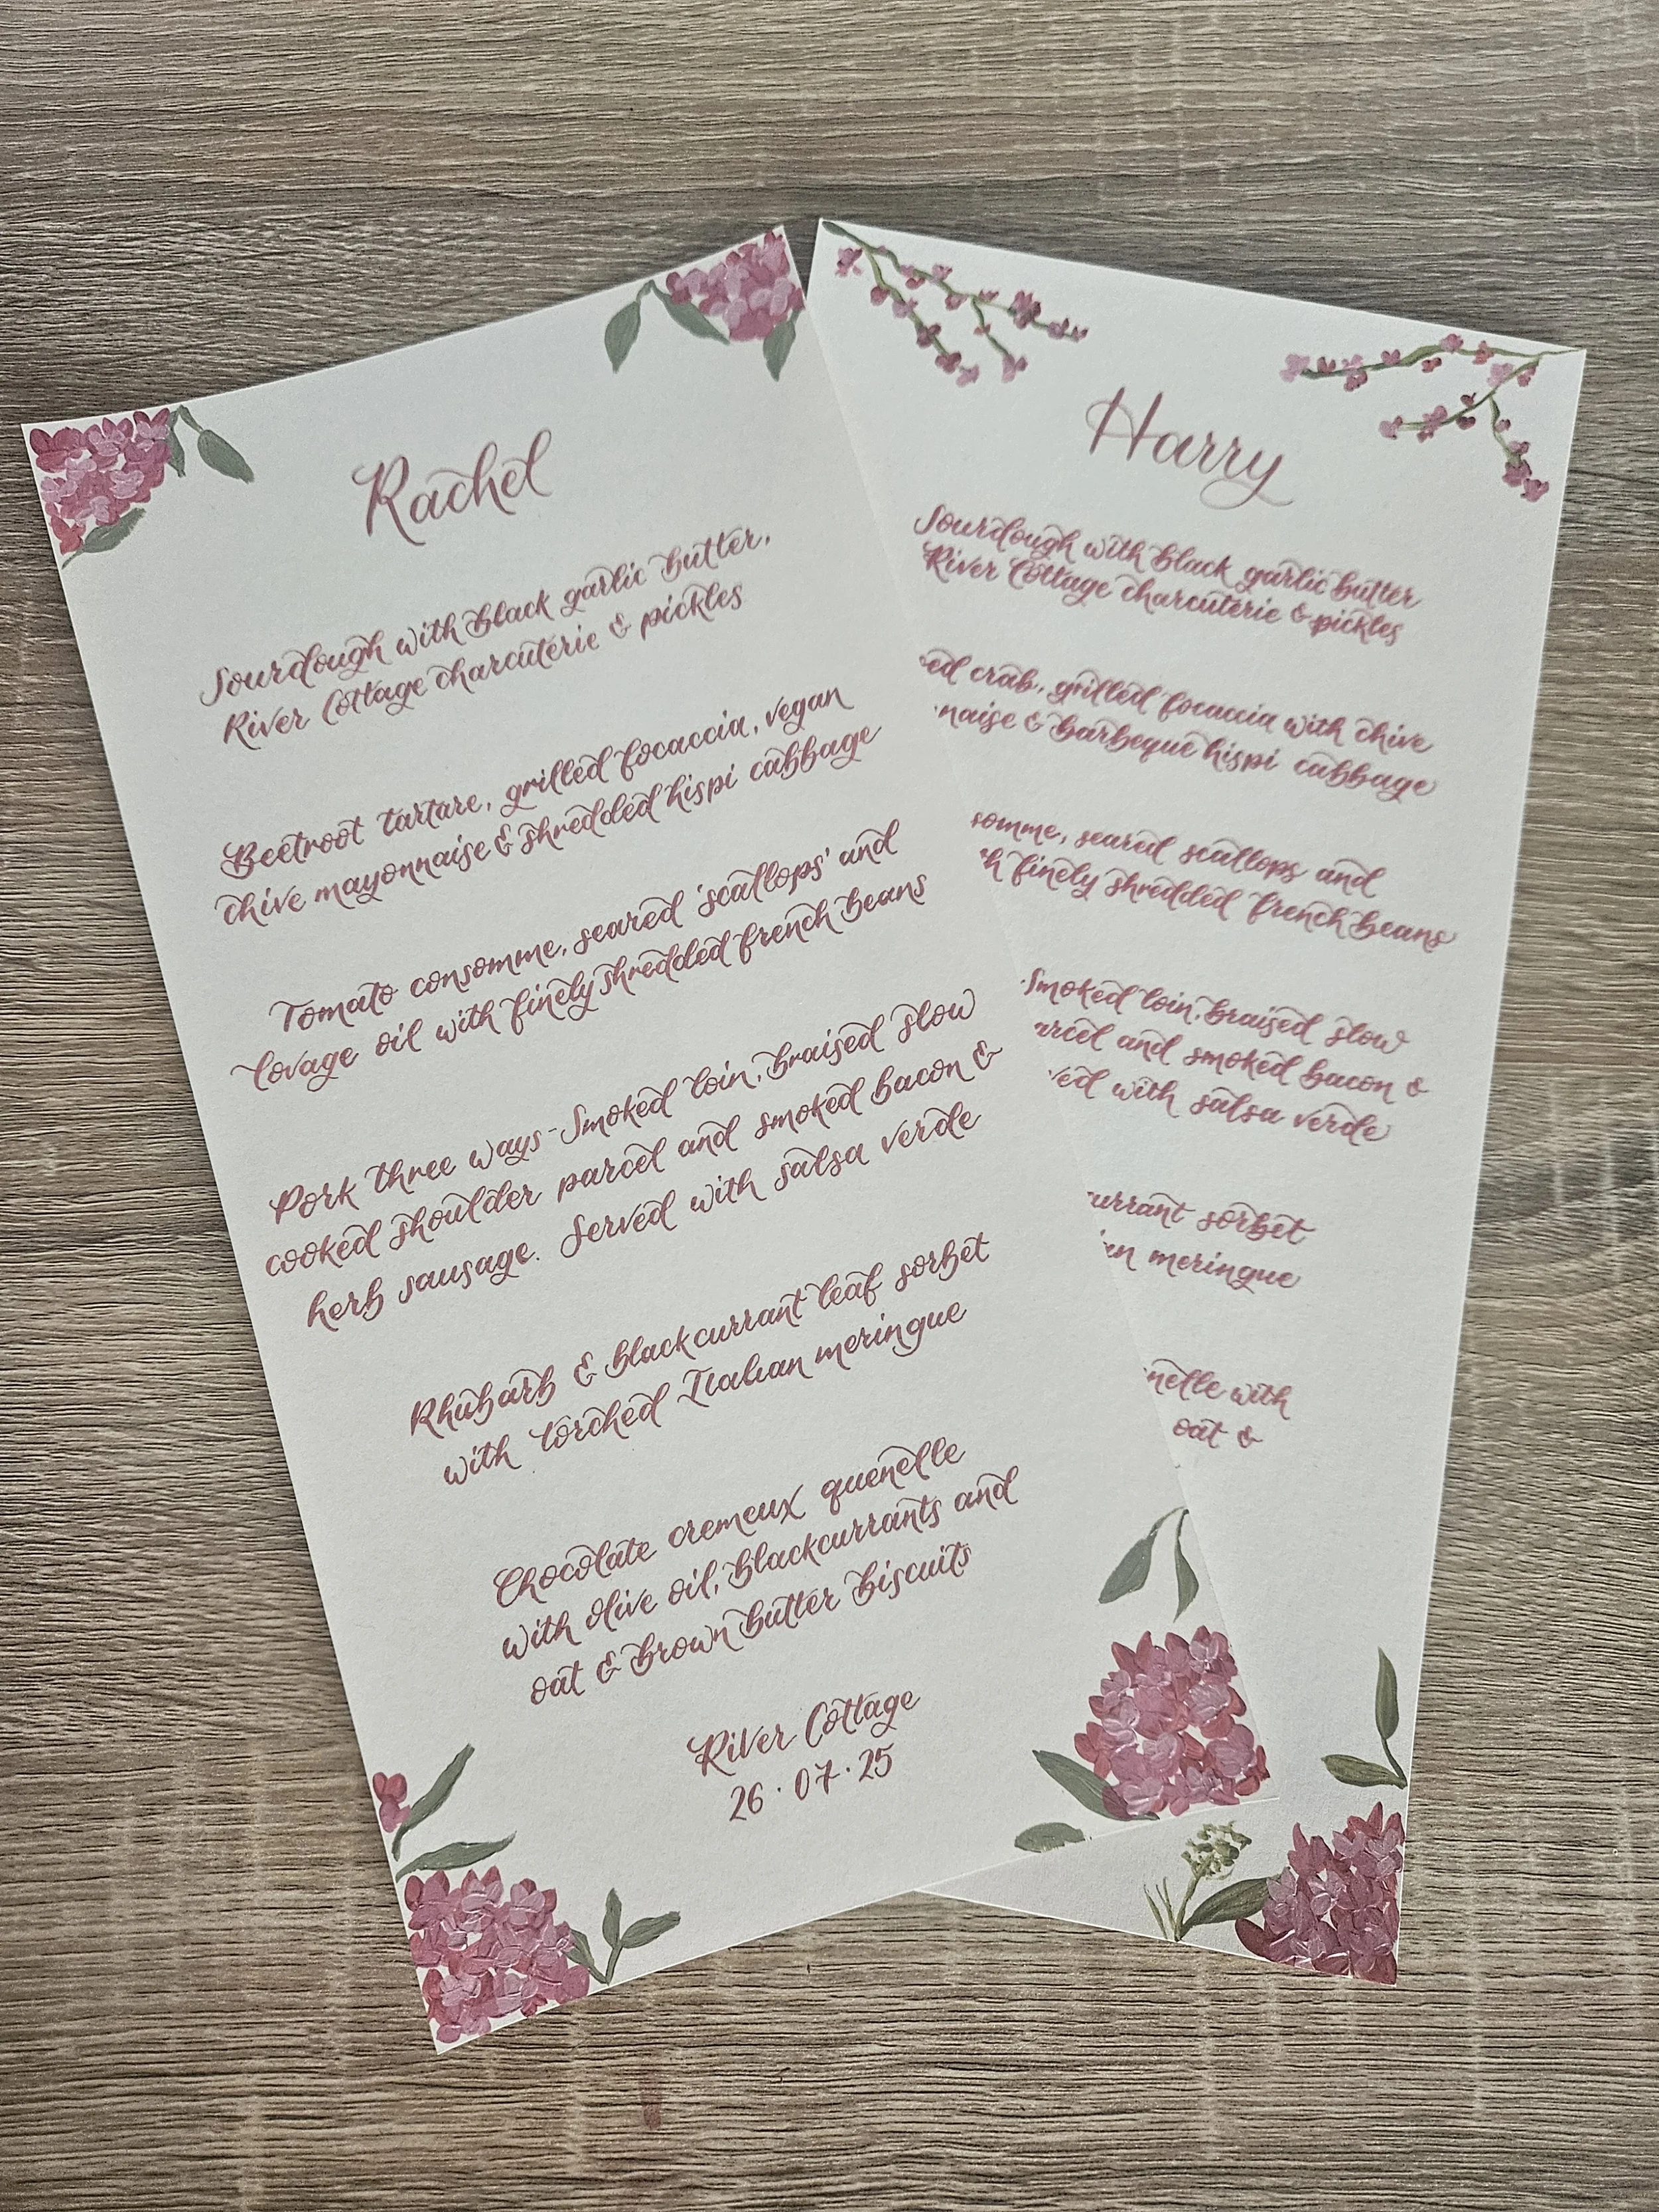 Rachel
Sourdough with black garlic butter,
River Cottage charcuterie & pickles
Beetroot tartare, grilled focaccia, vegan
chive mayonnaise & shredded hispi cabbage
Tomato consomme, seared 'scallops' and
lovage oil with finely shredded french beans
Pork three ways - Smoked loin, braised slow
cooked shoulder parcel and smoked bacon &
herb sausage. Served with salsa verde
Rhubarb & blackcurrant leaf sorbet
with torched Italian meringue
Chocolate cremeux quenelle
with olive oil, blackcurrants and
oat & brown butter biscuits
River Cottage
26 · 07 · 25
Harry
Sourdough with black garlic butter
River Cottage charcuterie & pickles
crab, grilled focaccia with chive
& barbeque hispi cabbage
seared scallops and
finely shredded french beans
Smoked loin, braised slow
and smoked bacon &
with salsa verde
sorbet
meringue
with
oat &